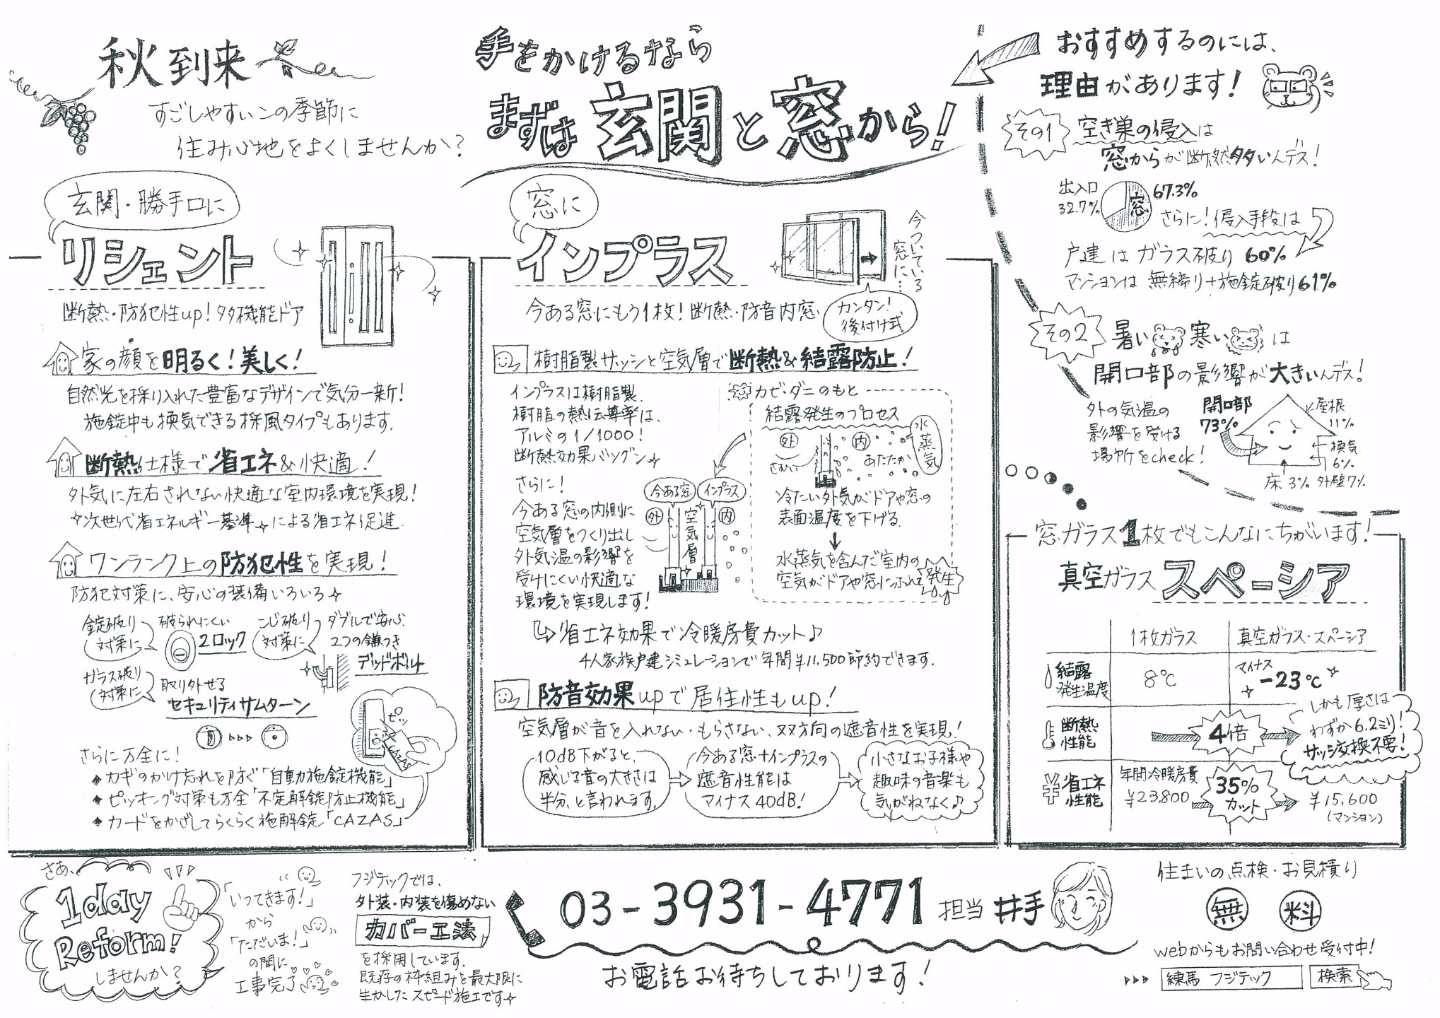 秋到来
すごしやすいこの季節に
住み心地をよくしませんか?
手をかけるなら
まずは玄関と窓から!
おすすめするのには、
理由があります!
その1 空き巣の侵入は
窓からが断然多いんデス!
出入口
32.7%
窓
67.3%
さらに!侵入手段は
戸建はガラス破り60%
マンションは無締り+施錠破り61%
その2 暑い 寒い は
開口部の影響が大きいんデス!
外の気温の
影響を受ける
場所をcheck!
開口部
73%
屋根
11%
換気
6%
床3%
外壁7%
玄関・勝手口に
リシェント
断熱・防犯性up!多機能ドア
家の顔を明るく!美しく!
自然光を採り入れた豊富なデザインで気分一新!
施錠中も換気できる採風タイプもあります.
断熱仕様で省エネ&快適!
外気に左右されない快適な室内環境を実現!
次世代省エネルギー基準 による省エネ促進.
ワンランク上の防犯性を実現!
防犯対策に、安心の装備いろいろ
錠破り
対策に
破られにくい
2ロック
こじ破り
対策に
ダブルで安心.
2つの鎌つき
デッドボルト
ガラス破り
対策に
取り外せる
セキュリティサムターン
ピッ
さらに万全に!
◆カギのかけ忘れを防ぐ「自動施錠機能」
◆ピッキング対策も万全「不正解錠防止機能」
◆カードをかざしてらくらく施解錠「CAZAS」
窓に
インプラス
今ついている
窓に…
今ある窓にもう1枚!断熱・防音内窓
カンタン!
後付け式
樹脂製サッシと空気層で断熱&結露防止!
インプラスは樹脂製.
樹脂の熱伝導率は、
アルミの1/1000!
断熱効果バツグン
さらに!
今ある窓の内側に
空気層をつくり出し
外気温の影響を
受けにくい快適な
環境を実現します!
今ある窓
インプラス
外
空気層
内
カビ・ダニのもと
結露発生のプロセス
外
内
さむい
あたたかい
水蒸気
冷たい外気がドアや窓の
表面温度を下げる.
↓
水蒸気を含んだ室内の
空気がドアや窓にふれて発生
省エネ効果で冷暖房費カット♪
4人家族戸建シミュレーションで年間¥11,500節約できます.
防音効果upで居住性もup!
空気層が音を入れない・もらさない、双方向の遮音性を実現!
10dB下がると、
感じる音の大きさは
半分、と言われます.
今ある窓+インプラスの
遮音性能は
マイナス40dB!
小さなお子様や
趣味の音楽も
気がねなく♪
窓ガラス1枚でもこんなにちがいます!
真空ガラス スペーシア
1枚ガラス
真空ガラス・スペーシア
結露
発生温度
8℃
マイナス
-23℃
断熱
性能
4倍
しかも厚さは
わずか6.2ミリ!
サッシ交換不要!
省エネ
性能
年間冷暖房費
¥23,800
35%
カット
¥15,600
(マンション)
さあ、
1day
Reform!
しませんか?
「いってきます!」
から
「ただいま!」
の間に
工事完了
フジテックでは、
外装・内装を傷めない
カバー工法
を採用しています.
既存の枠組みを最大限に
生かしたスピード施工です
03-3931-4771 担当 井手
お電話お待ちしております!
住まいの点検・お見積り
無料
webからもお問い合わせ受付中!
練馬 フジテック 検索